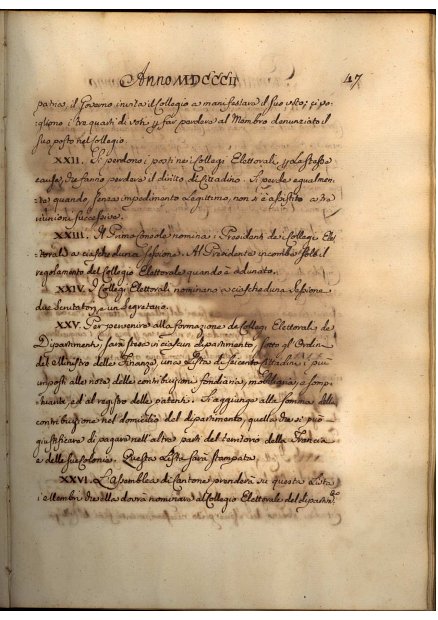 Anno MDCCCII
47
patria, il Governo invita il Collegio a manifestare il suo voto; ci vo-
gliono i tre quarti di voti p far perdere al Membro denunziato il
suo posto nel Collegio.
XXII. Si perdono i posti ne i Collegj Elettorali p le stesse
cause, che fanno perdere il diritto di Cittadino. Si perde egualmen-
te quando senza impedimento legittimo, non si è assistito a tre
riunioni successive.
XXIII. Il Primo Console nomina i Presidenti de i Collegj Elet-
torali a ciascheduna Sessione. Al Presidente incombe solo il
regolamento del Collegio Elettorale quando è adunato.
XXIV. I Collegj Elettorali nominano a ciascheduna Sessione
due Scrutatori, e un Segretario.
XXV. Per pervenire alla formazione de Collegj Elettorali de
Dipartimenti, sarà fatta in ciascun dipartimento, sotto gl'Ordini
del Ministro delle Finanze, una Lista di seicento Cittadini i più
imposti alle note delle contribuzioni fondiaria, mobiliaria, e somp-
tuaria, ed al registro delle patenti. Si aggiunge alla somma della
contribuzione nel domicilio del dipartimento, quella che si può
giustificare di pagare nell'altre parti del territorio della Francia
e delle sue Colonie. Questa Lista sarà stampata.
XXVI. L'Assemblea di Cantone prenderà su questa Lista
i Membri che ella dovrà nominare al Collegio Elettorale del dipartim.to